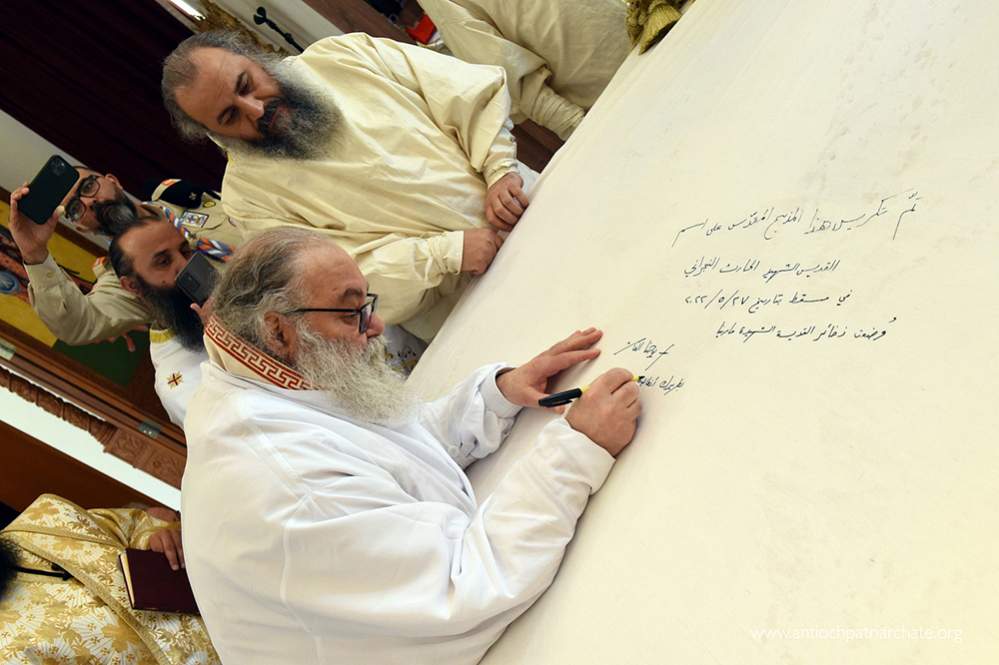 تمّ تكريس هذا المذبح المقدّس على اسم
القديس الشهيد الحارث النجراني
في مسقط بتاريخ ٢٧/٥/٢٠٢٢
وُضعت ذخائر القديسة الشهيدة مارينا
+ يوحنا العاشر
بطريرك أنطاكية
www.antiochpatriarchate.org